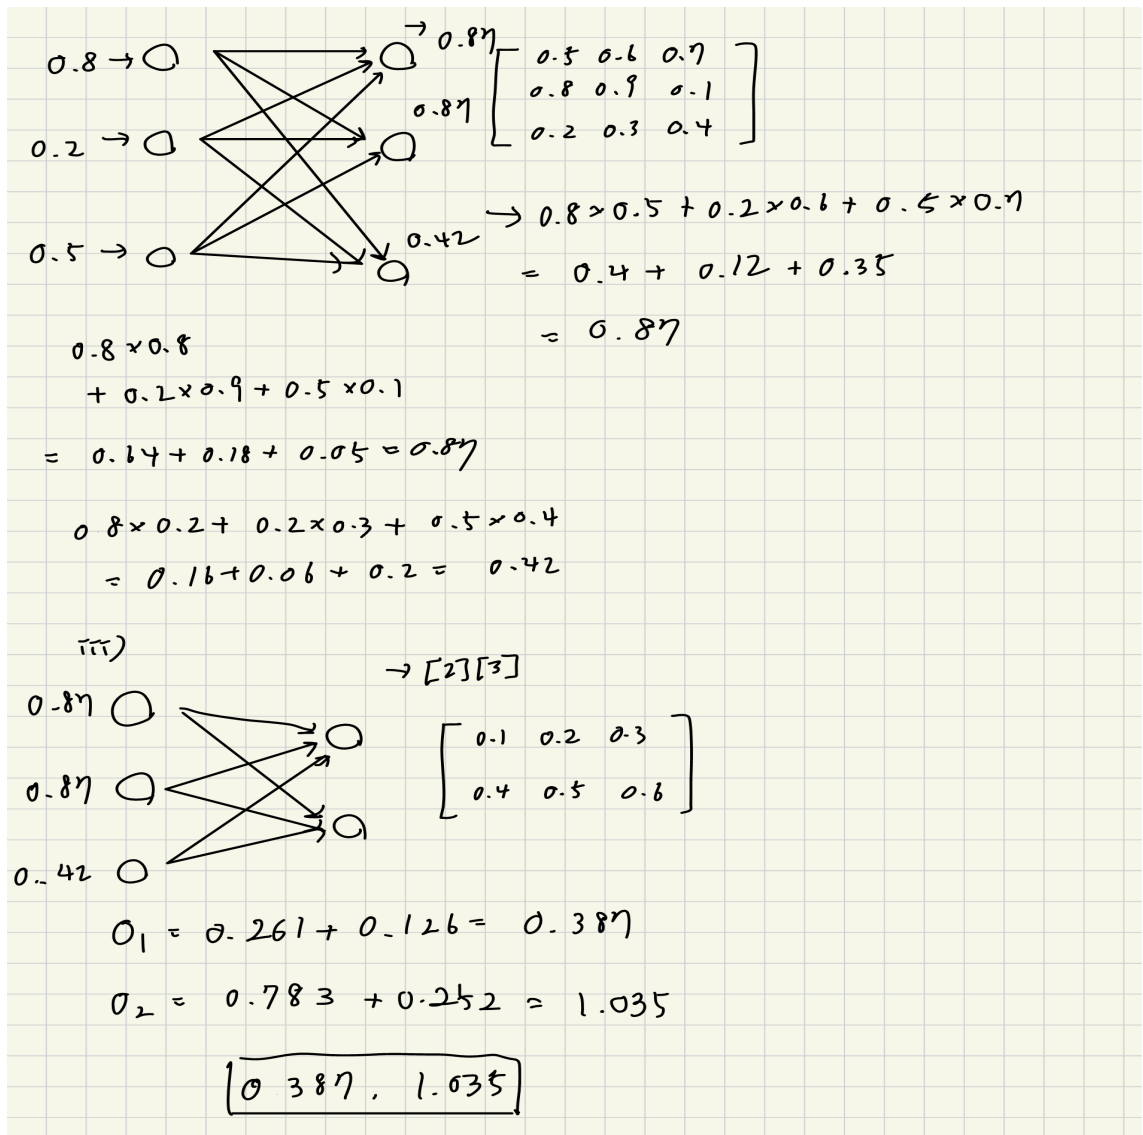 0.8 →
→ 0.87
0.2 →
0.87
0.5 →
0.42
0.5 0.6 0.7
0.8 0.9 0.1
0.2 0.3 0.4
→ 0.8 × 0.5 + 0.2 × 0.6 + 0.5 × 0.7
= 0.4 + 0.12 + 0.35
= 0.87
0.8 × 0.8
+ 0.2 × 0.9 + 0.5 × 0.1
= 0.64 + 0.18 + 0.05 = 0.87
0 8 × 0.2 + 0.2 × 0.3 + 0.5 × 0.4
= 0.16 + 0.06 + 0.2 = 0.42
iii)
→ [2][3]
0.87
0.87
0.42
0.1 0.2 0.3
0.4 0.5 0.6
O₁ = 0.261 + 0.126 = 0.387
O₂ = 0.783 + 0.252 = 1.035
0 387, 1.035